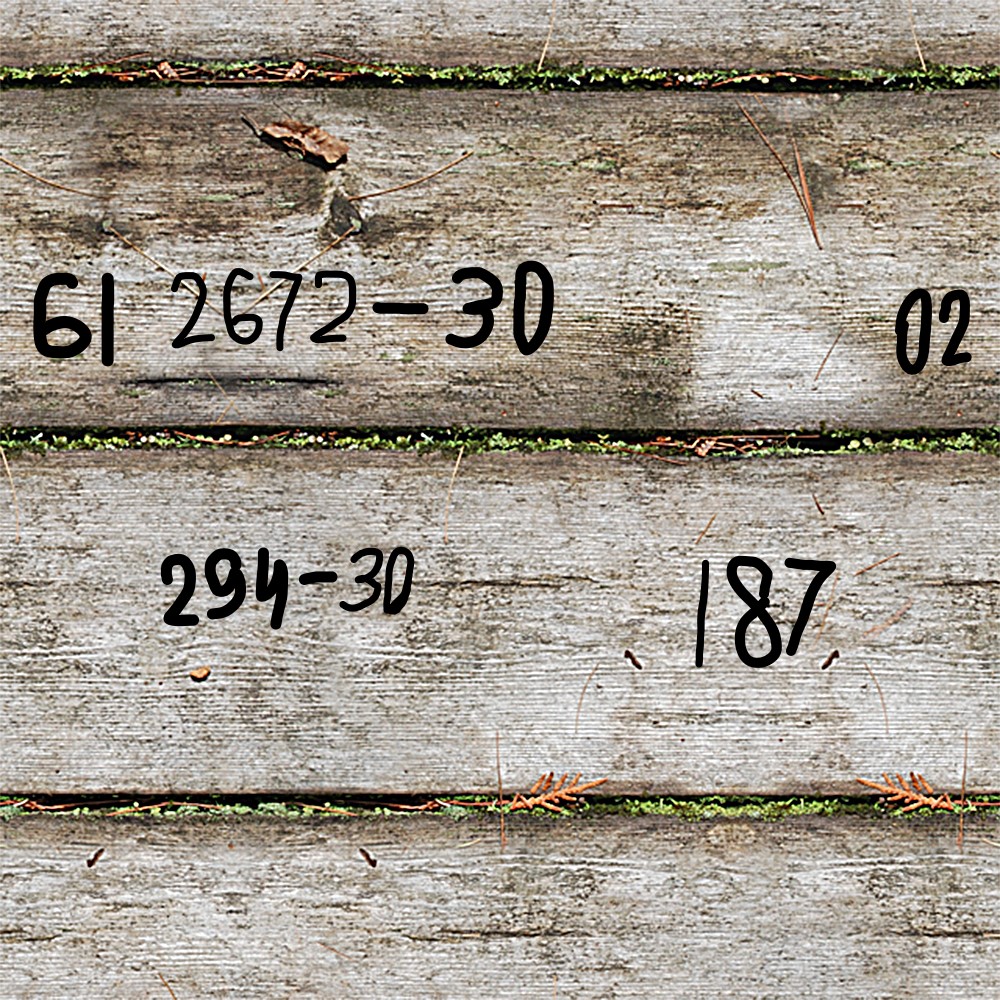 61 2672-30 02
294-30 187